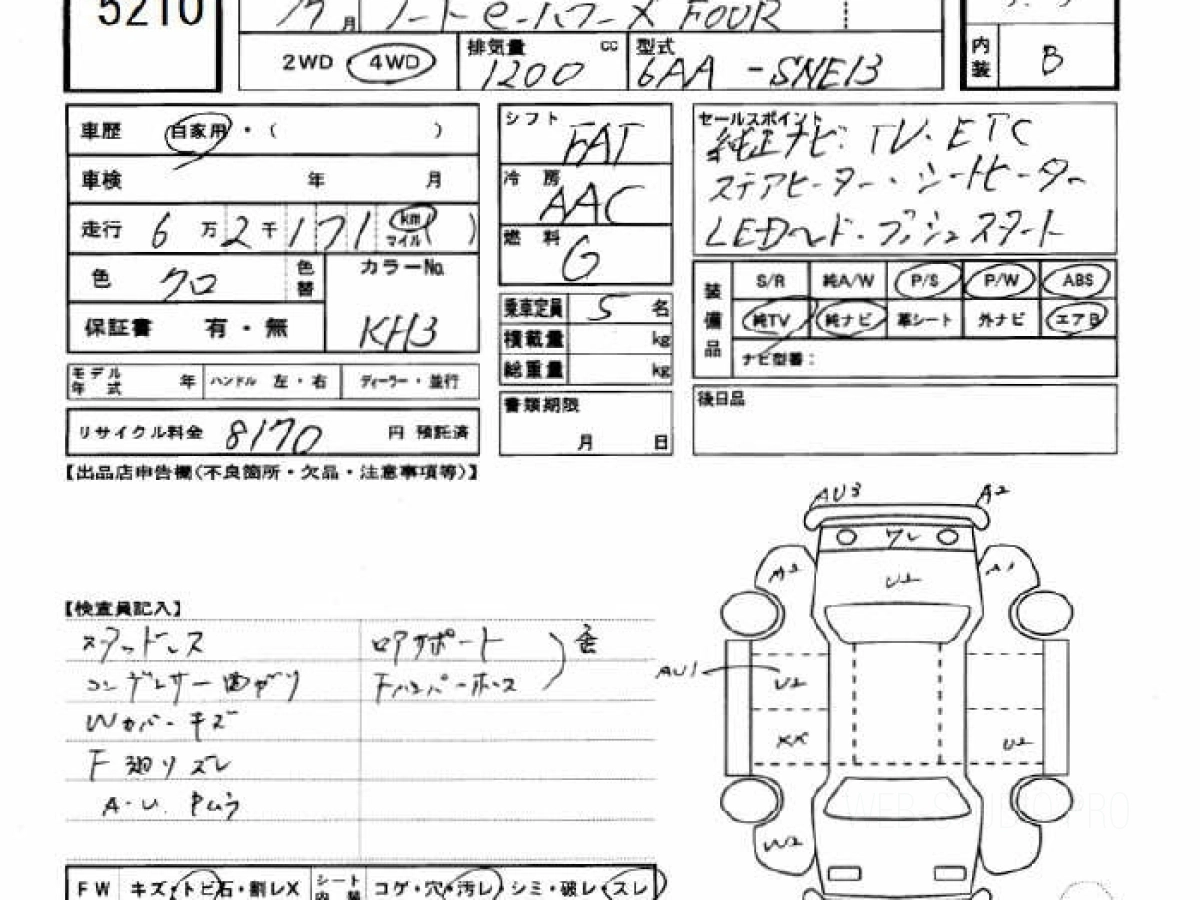 5210
月 ノート e-パワー X FOUR
2WD ・ 4WD 排気量 1200 cc 型式 6AA-SNE13
内装 B
車歴 自家用・( )
車検 年 月
走行 6万2千171 km マイル( )
色 クロ 色替 カラーNo. KH3
保証書 有・無
モデル年式 年 ハンドル 左・右 ディーラー・並行
リサイクル料金 8170 円 預託済
シフト FAT
冷房 AAC
燃料 G
乗車定員 5 名
積載量 kg
総重量 kg
書類期限 月 日
セールスポイント
純正ナビ・TV・ETC
ステアヒーター・シートヒーター
LEDヘッド・プッシュスタート
装備品 S/R 純A/W P/S P/W ABS
純TV 純ナビ 革シート 外ナビ エアB
ナビ型番:
後日品
【出品店申告欄(不良箇所・欠品・注意事項等)】
【検査員記入】
スタッドレス
コンデンサー曲がり
Wカバーキズ
F廻りズレ
A・U Pムラ
ロアサポート
Fバンパーホース
歪
AU3 A2
ワレ
A2 U2 A1
AU1 U2
XX U2
W2
FW キズ・トビ石・割レX シート内装 コゲ・穴・汚レ・シミ・破レ・スレ